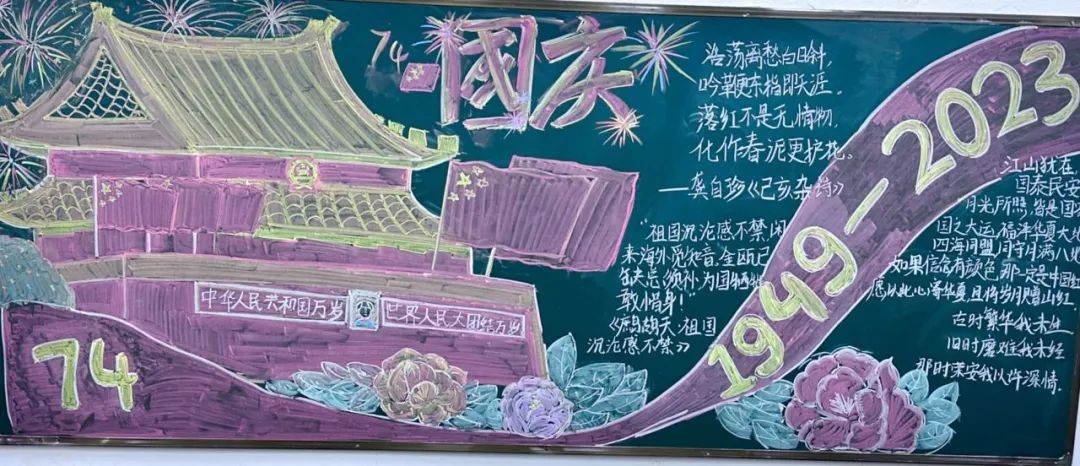 74
国庆
浩荡离愁白日斜,
吟鞭东指即天涯.
落红不是无情物,
化作春泥更护花。
——龚自珍《己亥杂诗》
"祖国沉沦感不禁,闲
来海外觅知音,金瓯已
缺总须补,为国牺牲
敢惜身!"
《鹧鸪天·祖国
沉沦感不禁》
1949-2023
江山犹在,
国泰民安
月光所照,皆是国
国之大运,福泽华夏大地
四海同盟,同守月满八
如果信念有颜色,那一定是中国红
愿以此心寄华夏,且将岁月赠山红
古时繁华我未生
旧时磨难我未经
那时荣安我以许深情.
中华人民共和国万岁
世界人民大团结万岁
74